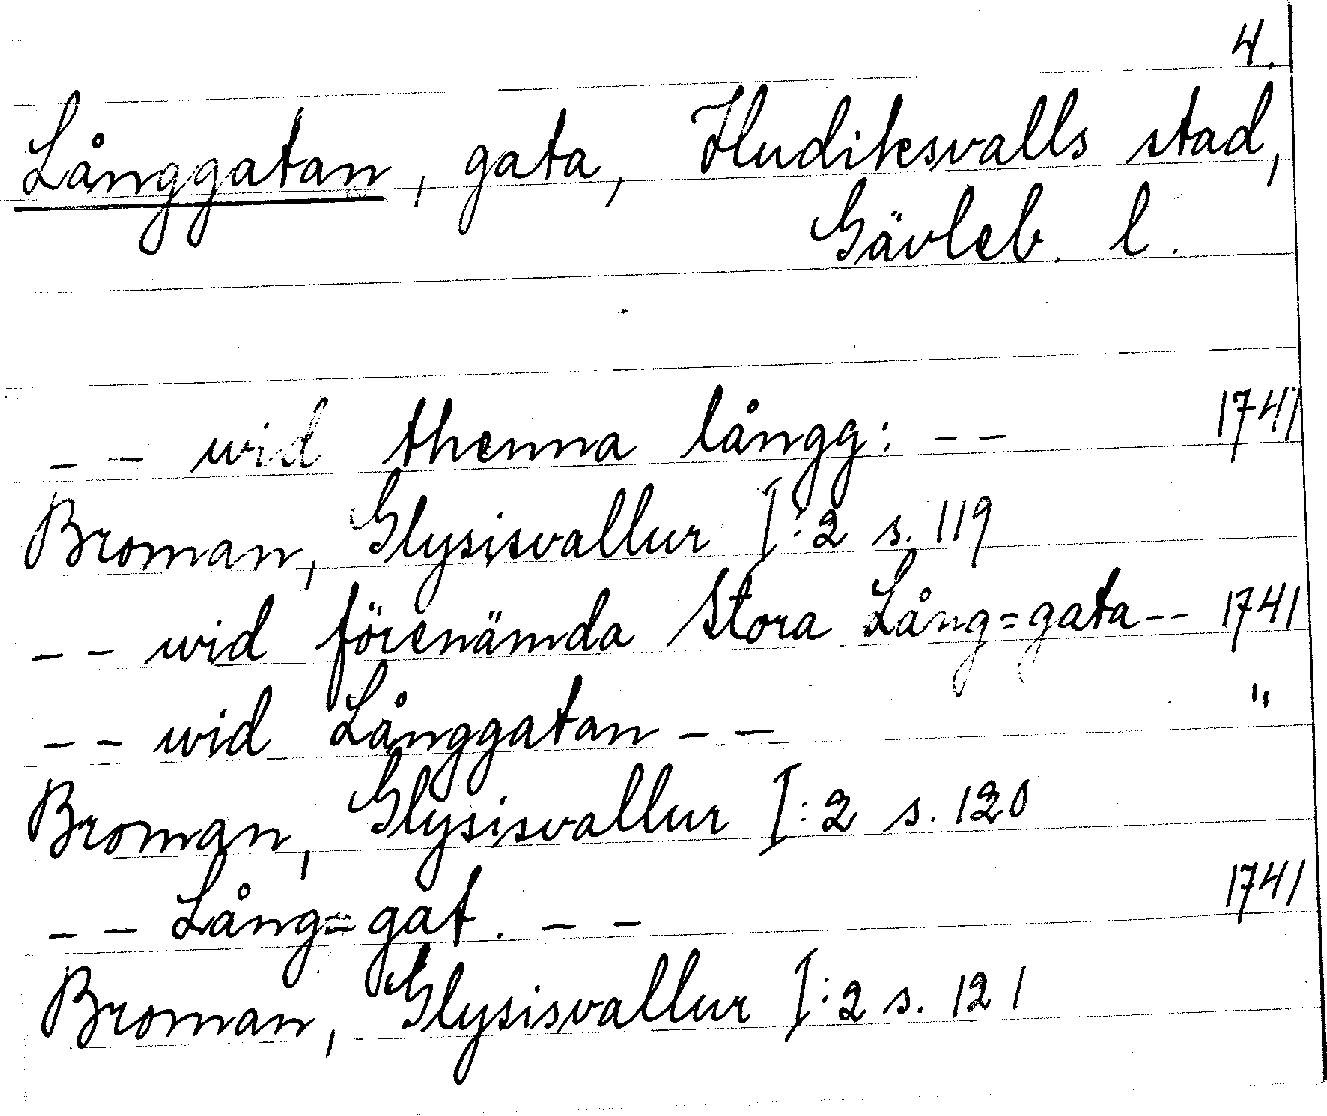 4.
Långgatan, gata, Hudiksvalls stad,
Gävleb. l.
-- wid thenna långg: -- 1741
Broman, Glysisvallur I:2 s. 119
-- wid förenämda Stora Lång=gata -- 1741
-- wid Långgatan -- "
Broman, Glysisvallur I:2 s. 120
-- Lång=gat. -- 1741
Broman, Glysisvallur I:2 s. 121